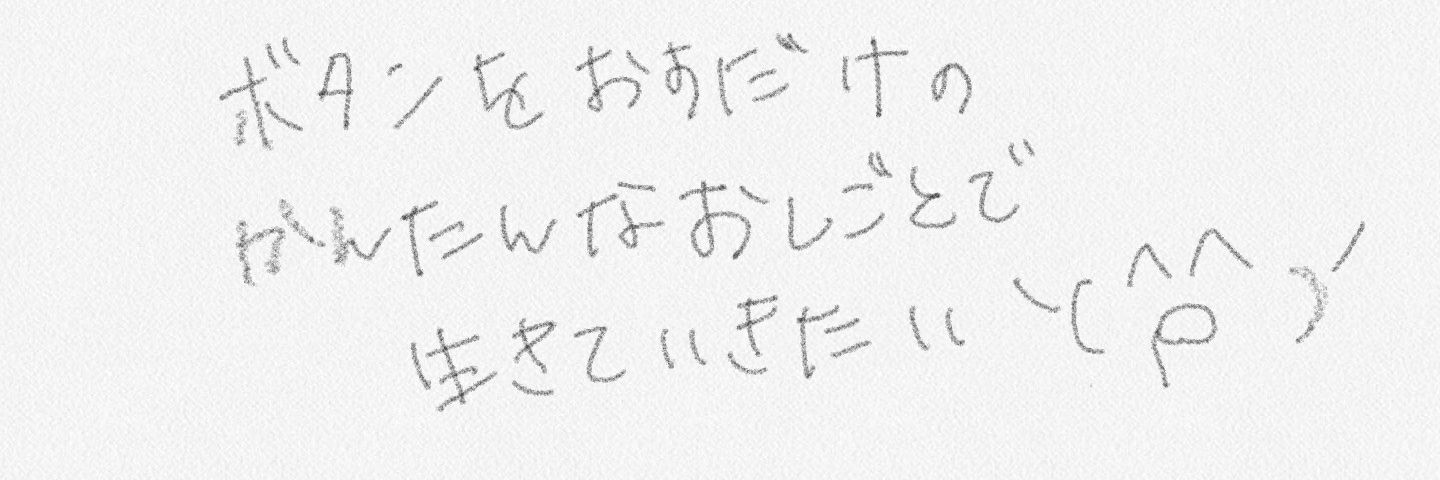 ボタンをおすだけの
かんたんなおしごとで
生きていきたい ヽ(^ρ^)ノ